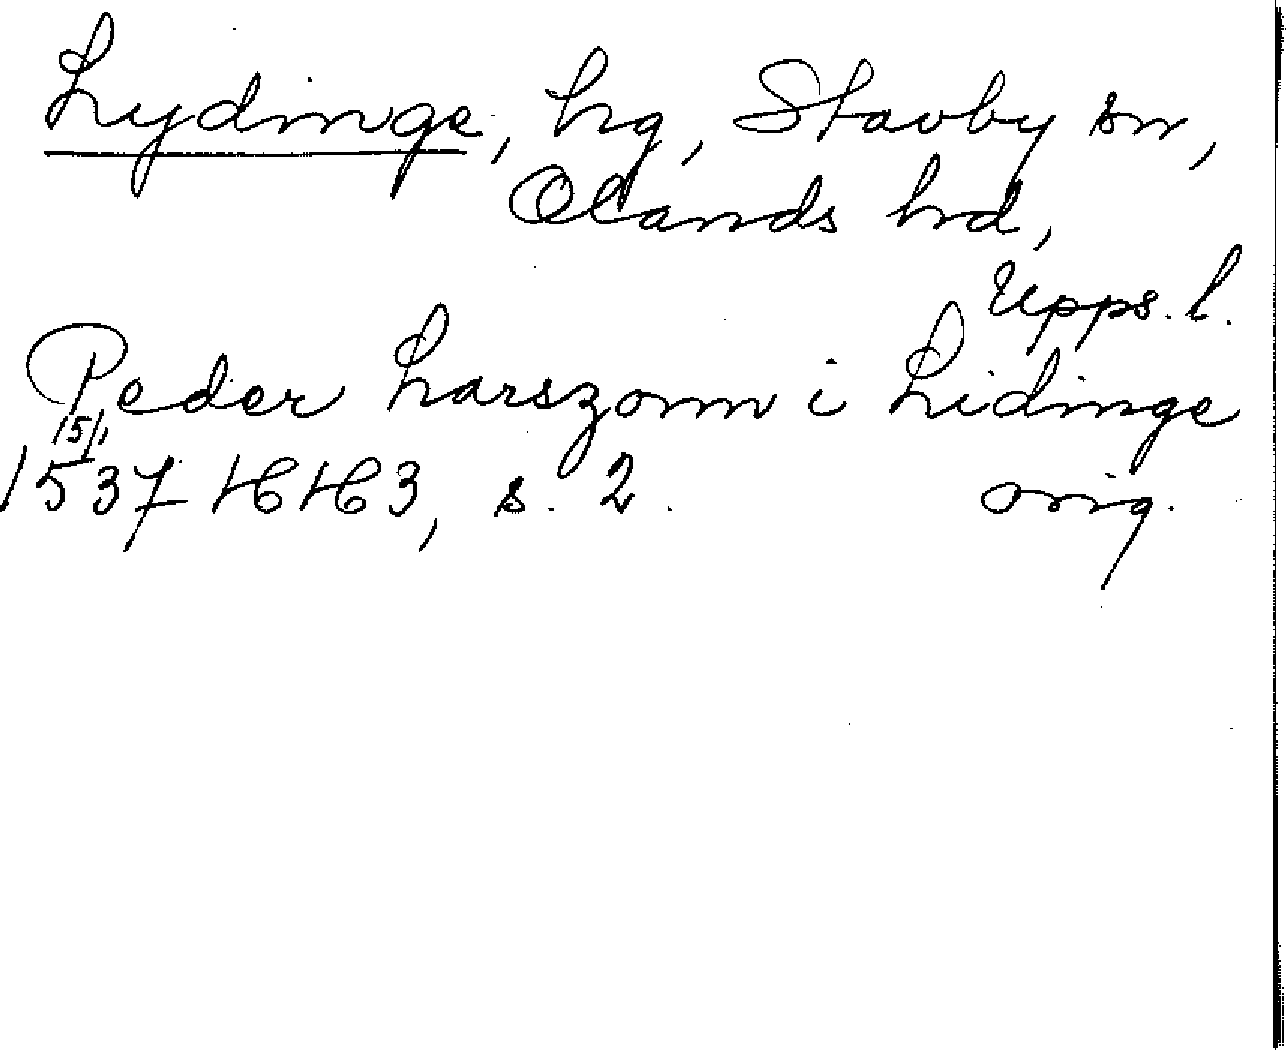 Lydinge, hg, Stavby sn,
Olands hd,
Upps. l.
Peder Larszonn i Lidinge
15/1
1537 HH3, s. 2. orig.